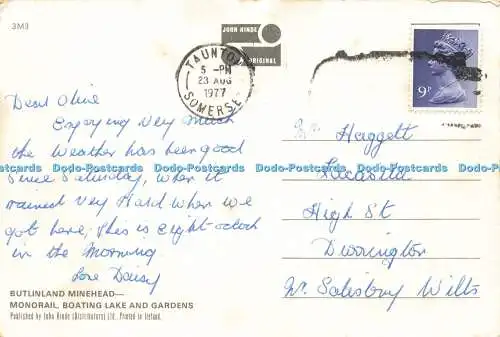 3M3
JOHN HINDE
ORIGINAL
TAUNTON
5 - PM
23 AUG
1977
SOMERSET
9P
Dear Olive
Enjoying Very Much
the Weather has been good
Since Saturday, When it
rained Very Hard When we
got here, This is Eight oclock
in the Morning
Love Daisy
BUTLINLAND MINEHEAD—
MONORAIL, BOATING LAKE AND GARDENS
Published by John Hinde (Distributors) Ltd., Printed in Ireland.
Haggett
High St
Durrington
Nr. Salisbury Wilts
Dodo-Postcards Dodo-Postcards Dodo-Postcards Dodo-Postcards Dodo-Postcards